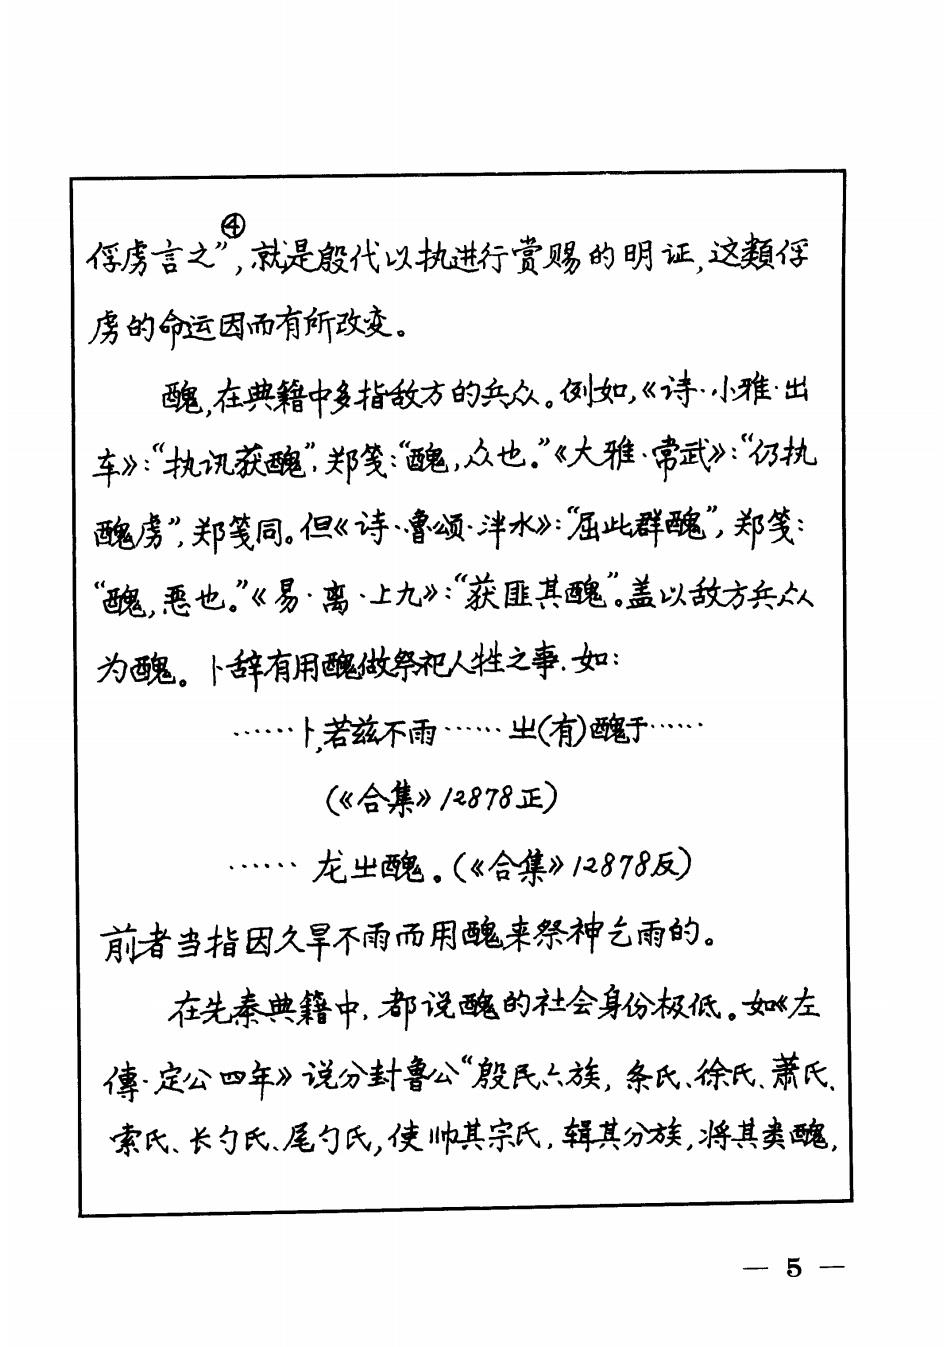 俘虏言之”④,就是殷代以执进行赏赐的明证,这類俘
虏的命运因而有所改变。
醜,在典籍中多指敌方的兵众。例如,《诗·小雅·出
车》:“执讯获醜”,郑笺:“醜,众也。”《大雅·常武》:“仍执
醜虏”,郑笺同。但《诗·鲁颂·泮水》:“屈此群醜”,郑笺:
“醜,恶也。”《易·离·上九》:“获匪其醜”。盖以敌方兵众
为醜。卜辞有用醜做祭祀人牲之事.如:
……卜,若兹不雨……㞢(有)醜于……
(《合集》12878正)
…… 龙㞢醜。(《合集》12878反)
前者当指因久旱不雨而用醜来祭神乞雨的。
在先秦典籍中,都说醜的社会身份极低。如《左
傳·定公四年》说分封鲁公“殷民六族,条氏、徐氏、萧氏、
索氏、长勺氏、尾勺氏,使帅其宗氏,辑其分族,将其类醜,
— 5 —